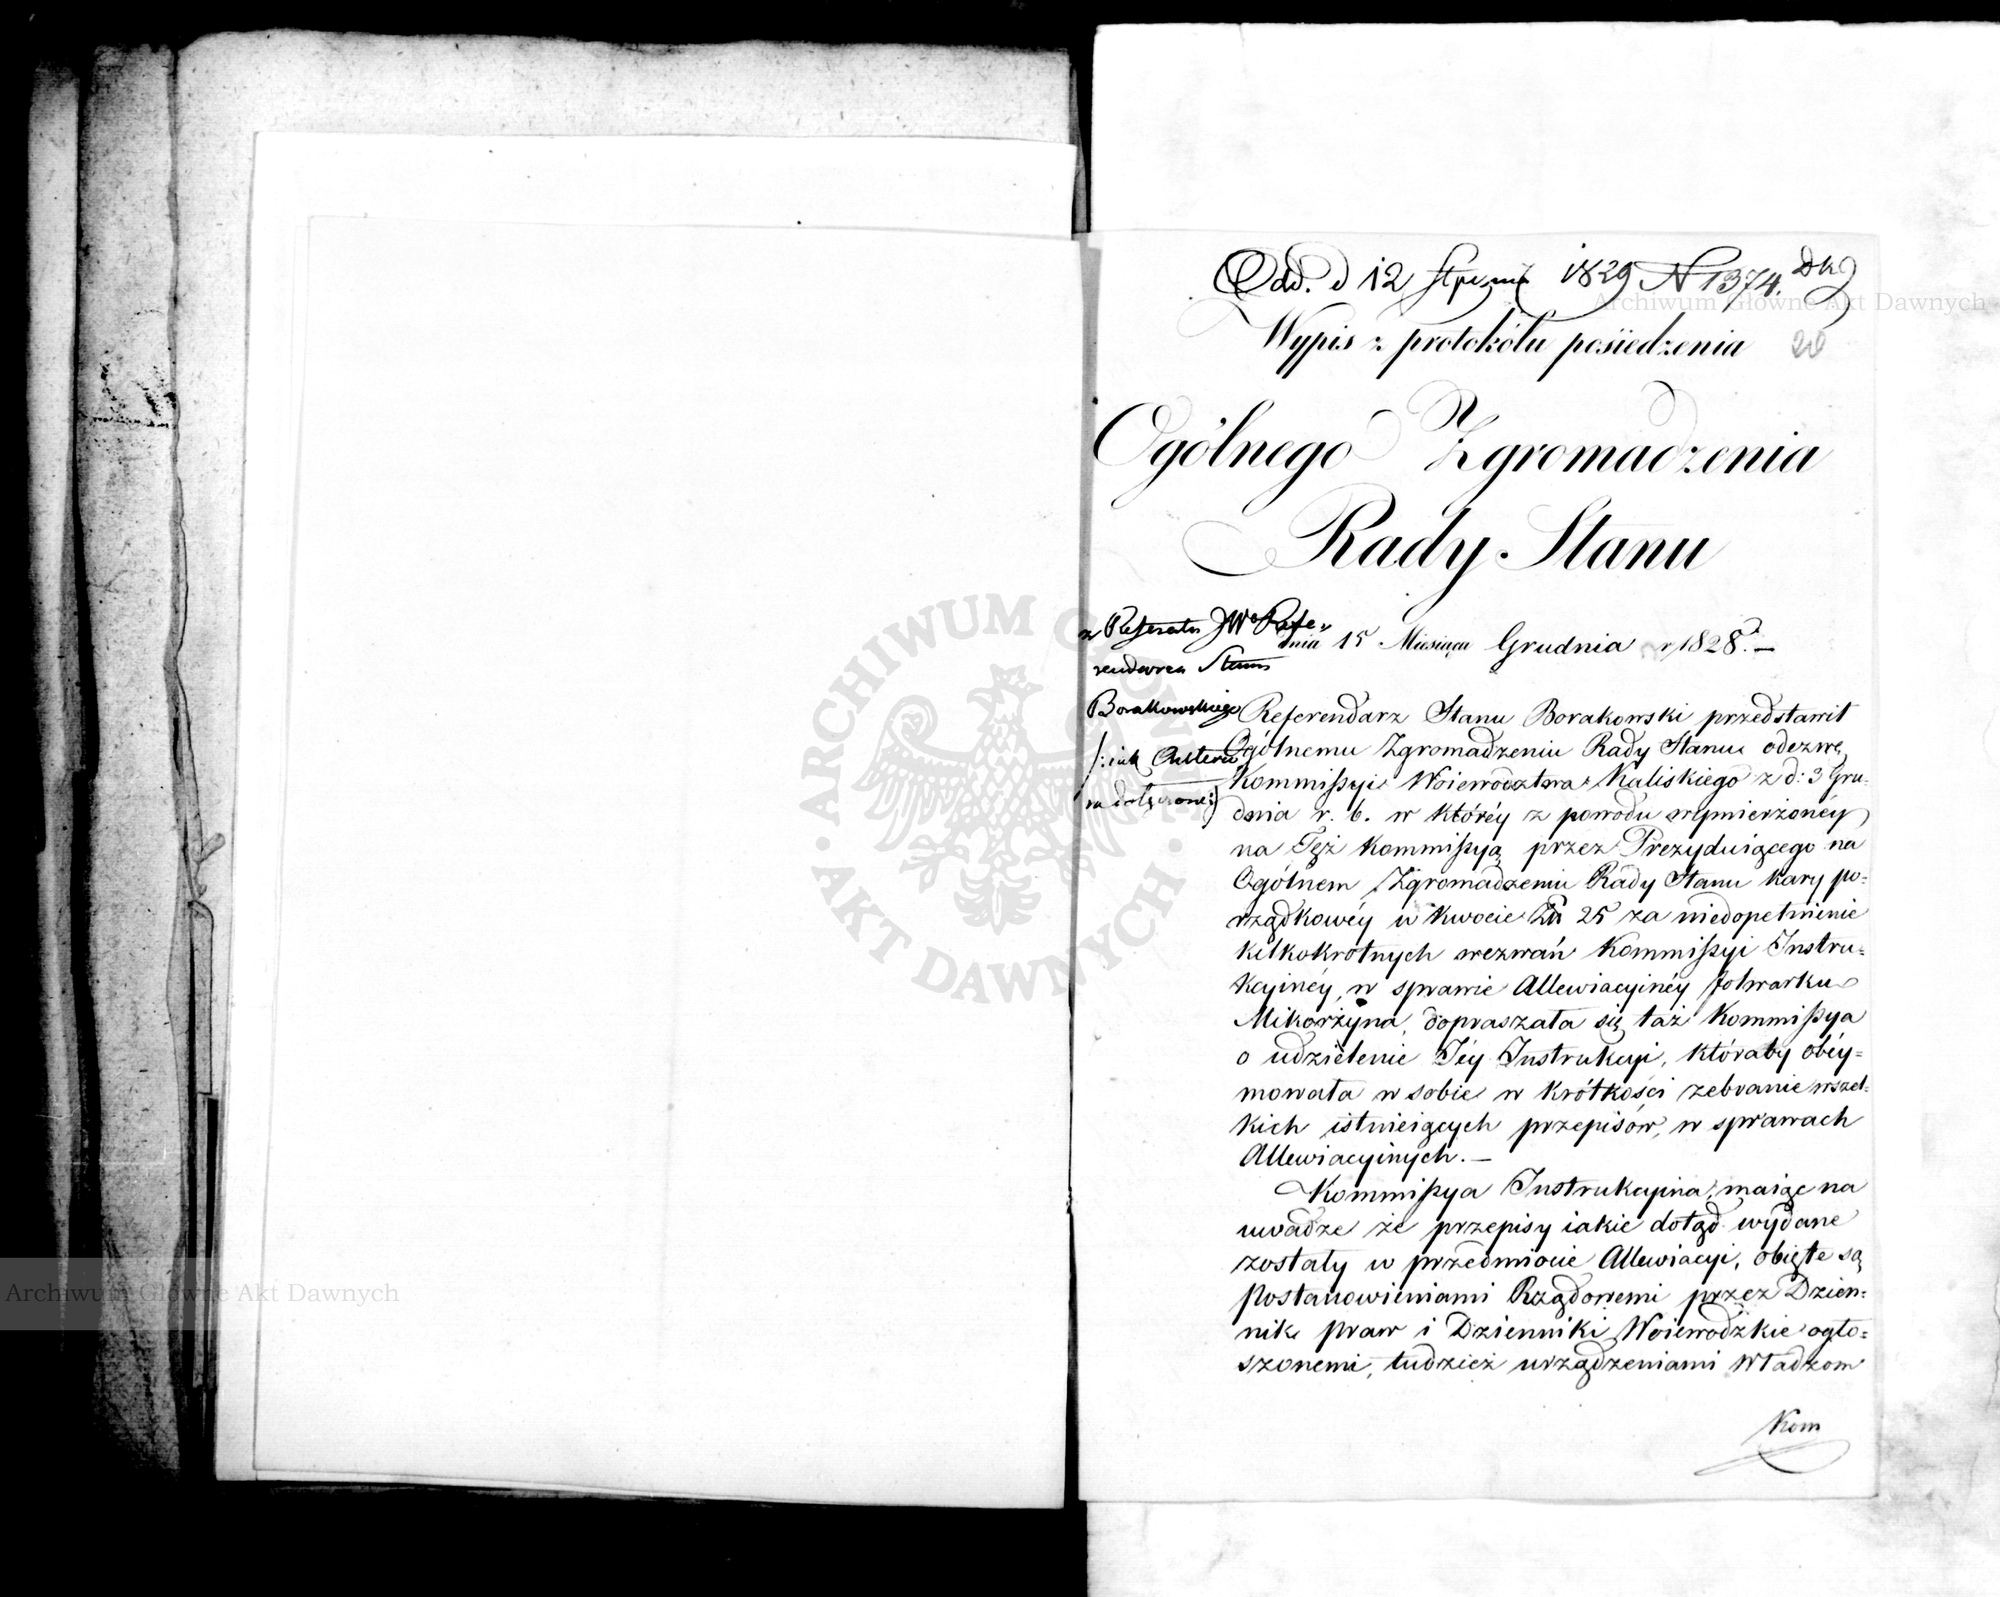 Odd. d 12 Stycznia 1829 N 1374.
20
Wypis z protokółu posiedzenia
Ogólnego Zgromadzenia
Rady Stanu
dnia 15 Miesiąca Grudnia r. 1828. —
z Referatu JW Refe-
rendarza Stanu
Borakowskiego
Referendarz Stanu Borakowski przedstawił
Ogólnemu Zgromadzeniu Rady Stanu odezwę
Kommissyi Woiewodztwa Kaliskiego z d: 3 Gru-
dnia r. b. w któréy z powodu wymierzonéy
na Tęż Kommissyą przez Prezyduiącego na
Ogólnem Zgromadzeniu Rady Stanu kary po-
rządkowéy w kwocie Zł 25 za niedopełnienie
kilkokrotnych wezwań Kommissyi Instru-
kcyinéy, w sprawie Allewiacyinéy folwarku
Mikorzyna, dopraszała się taż Kommissya
o udzielenie Jéy Instrukcyi, któraby obéy-
mowała w sobie w krótkości zebranie wszel-
kich istnieiących przepisów, w sprawach
Allewiacyinych. —
Kommissya Instrukcyina, maiąc na
uwadze że przepisy iakie dotąd wydane
zostały w przedmiocie Allewiacyi, obięte są
Postanowieniami Rządowemi przez Dzien-
nik praw i Dzienniki Woiewodzkie ogło-
szonemi, tudzież urządzeniami Władzom
Kom
ARCHIWUM GŁÓWNE · AKT DAWNYCH ·
Archiwum Główne Akt Dawnych
Archiwum Główne Akt Dawnych